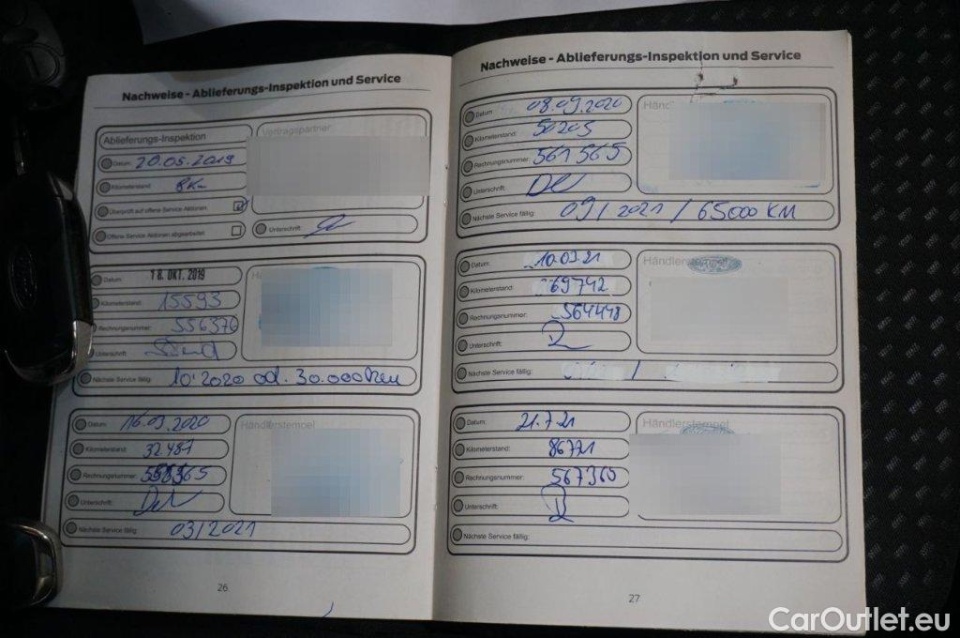 Nachweise - Ablieferungs-Inspektion und Service
Ablieferungs-Inspektion
Vertragspartner
Datum: 20.05.2019
Kilometerstand: 8 Km
Überprüft auf offene Service Aktionen
Offene Service Aktionen abgearbeitet
Unterschrift:
Datum: 18. OKT. 2019
Kilometerstand: 15593
Rechnungsnummer: 556376
Unterschrift:
Nächste Service fällig: 10.2020 od. 30.000 Km
Datum: 16.03.2020
Händlerstempel
Kilometerstand: 32487
Rechnungsnummer: 558365
Unterschrift:
Nächste Service fällig: 03/2021
26
Nachweise - Ablieferungs-Inspektion und Service
Datum: 08.09.2020
Kilometerstand: 50203
Rechnungsnummer: 561565
Unterschrift:
Nächste Service fällig: 09/2021 / 65000 KM
Datum: 10.03.21
Händlerstempel
Kilometerstand: 69742
Rechnungsnummer: 564448
Unterschrift:
Nächste Service fällig:
Datum: 21.7.21
Händlerstempel
Kilometerstand: 86721
Rechnungsnummer: 567360
Unterschrift:
Nächste Service fällig:
27
CarOutlet.eu